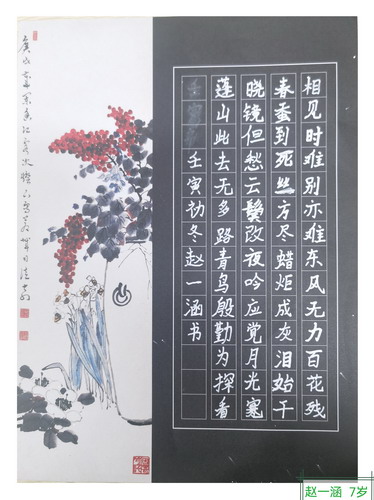 相见时难别亦难东风无力百花残
春蚕到死丝方尽蜡炬成灰泪始干
晓镜但愁云鬓改夜吟应觉月光寒
蓬山此去无多路青鸟殷勤为探看
壬寅初冬赵一涵书
赵一涵 7岁